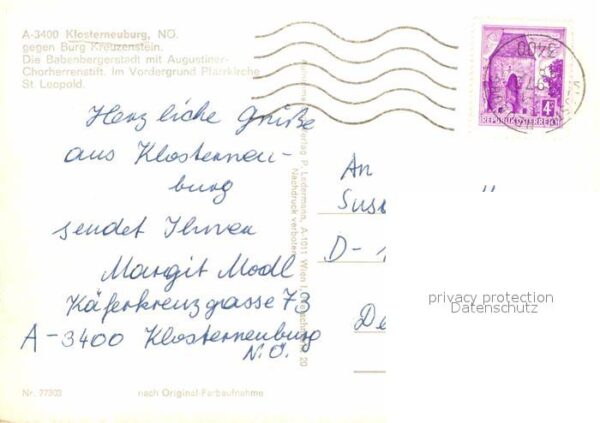 A-3400 Klosterneuburg, NÖ.
gegen Burg Kreuzenstein.
Die Babenbergerstadt mit Augustiner-
Chorherrenstift. Im Vordergrund Pfarrkirche
St. Leopold.
Herzliche Grüße
aus Klosterneu-
burg
sendet Ihnen
Margit Modl
Käferkreuzgasse 73
A-3400 Klosterneuburg
N.Ö.
Nr. 77303
nach Original-Farbaufnahme
Verlag P. Ledermann, A-1011 Wien I,
Nachdruck verboten
3400
4
REPUBLIK ÖSTERREICH
An
D-
privacy protection
Datenschutz